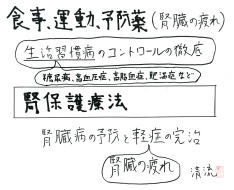 食事、運動、予防薬(腎臓の疲れ)
生活習慣病のコントロールの徹底
糖尿病、高血圧症、高脂血症、肥満症など
腎保護療法
腎臓病の予防と軽症の完治
腎臓の疲れ
清流